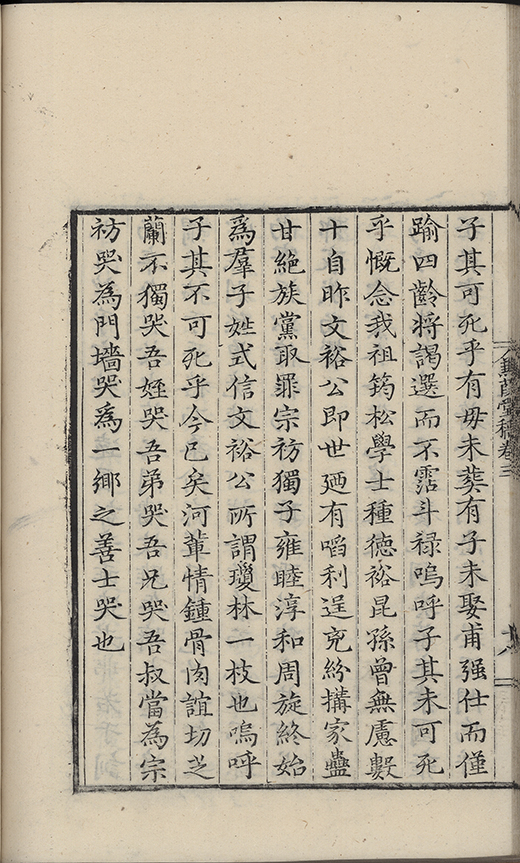 堂稿卷三
子其可死乎有毋未葬有子未娶甫强仕而僅
踰四齡将謁選而不霑斗禄嗚呼子其未可死
乎慨念我祖筠松學士種德裕昆孫曾無慮數
十自昨文裕公即世廼有啗利逞兇紛搆家蠱
甘絶族黨取罪宗祊獨子雍睦淳和周旋終始
爲羣子姓式信文裕公所謂瓊林一枝也嗚呼
子其不可死乎今已矣河軰情鍾骨肉誼切芝
蘭不獨哭吾姪哭吾弟哭吾兄哭吾叔當為宗
祊哭為門墻哭爲一鄉之善士哭也